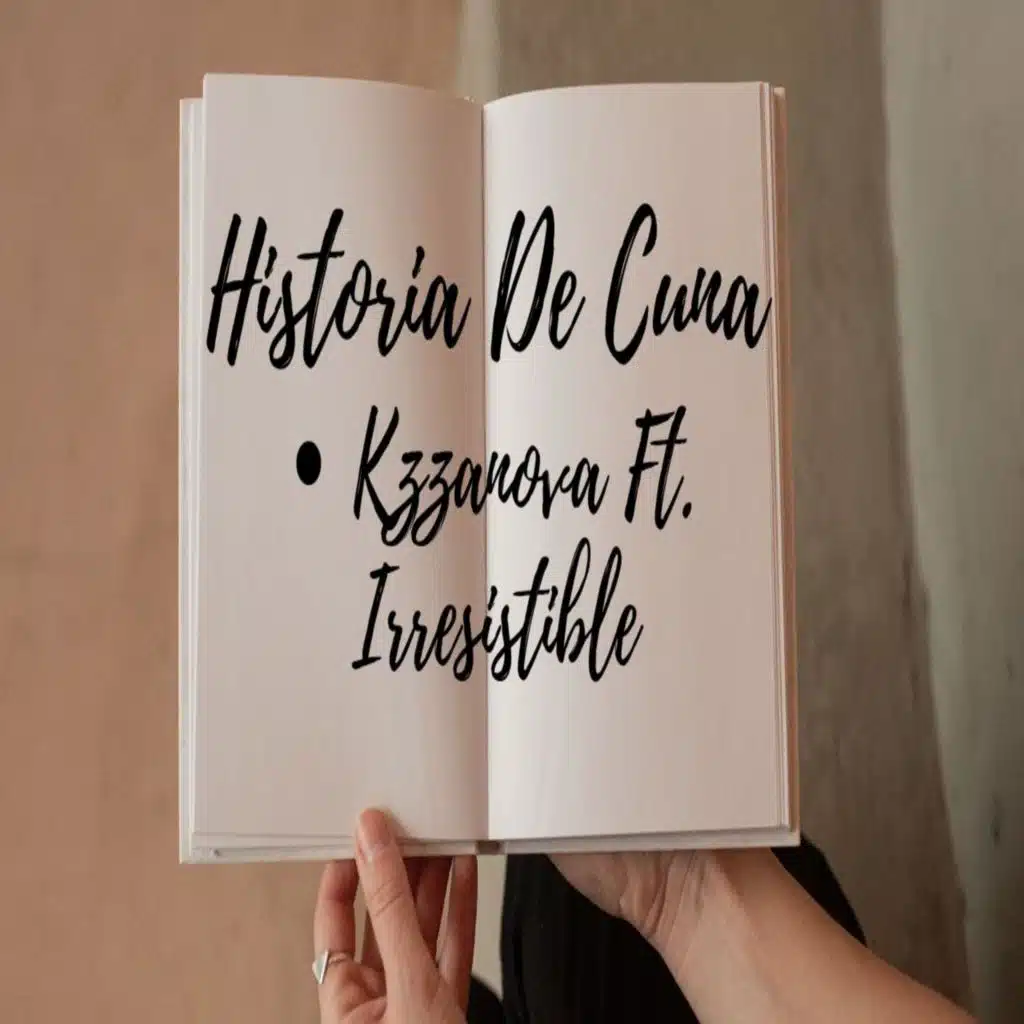 Historia De Cuna
• Kzzanova Ft.
Irresistible